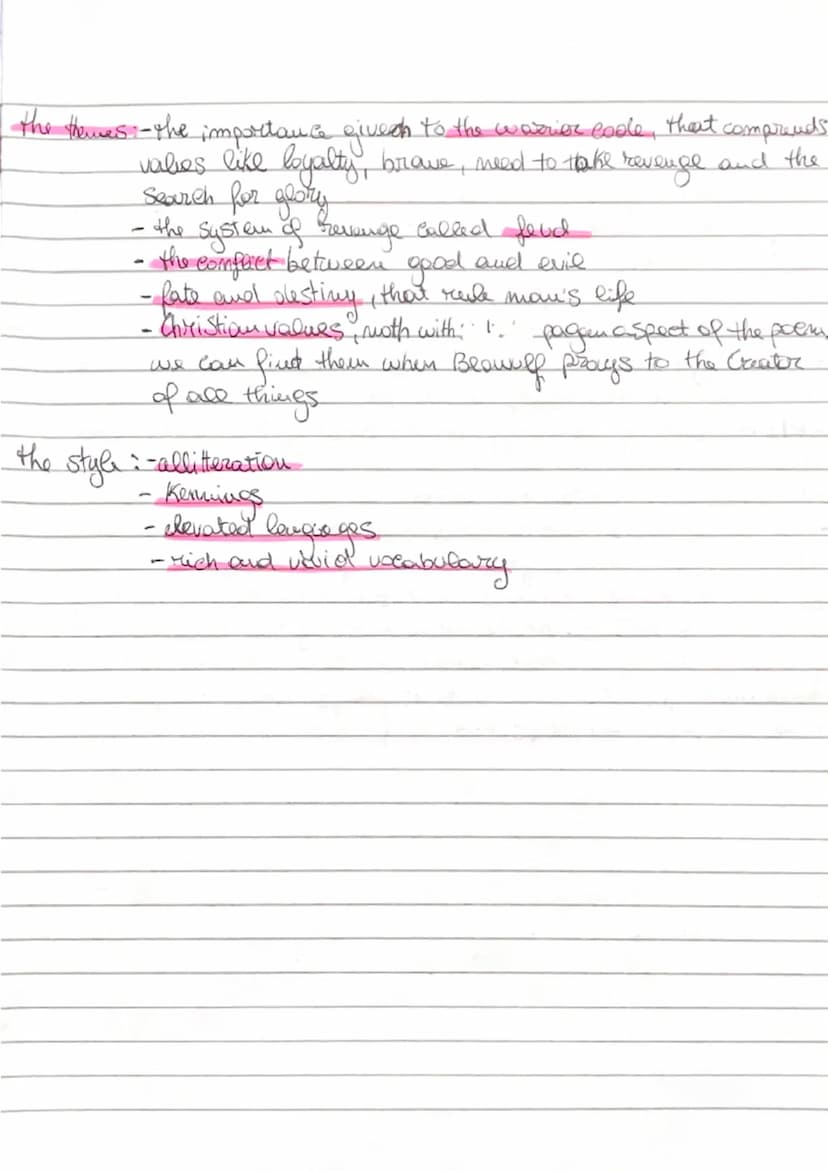 the themes:-the importance given to the warrior code, that comprends
values like loyalty, brave, need to take revenge and the
search for glory
- the system of revenge called feud
- the conflict between good and evil
- fate and destiny, that rule man's life
- Christian values, pagan aspect of the poem,
we can find them when Beowulf prays to the Creator
of all things
the style:-alliteration
- Kennings
- elevated languages
- rich and vivid vocabulary